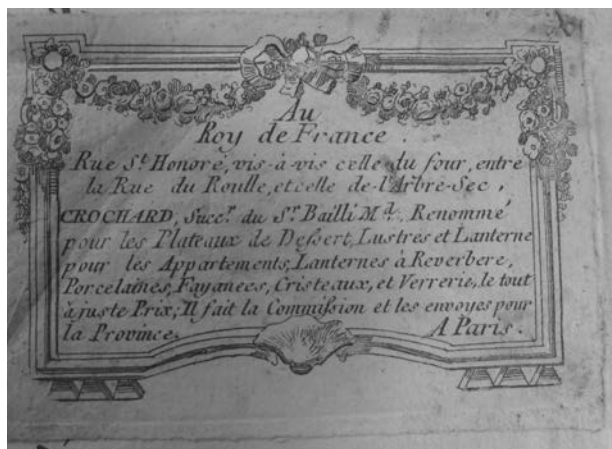 Au
Roy de France.
Rue S.t Honoré, vis-à-vis celle du four, entre
la Rue du Roulle, et celle de-l'Arbre-Sec,
CROCHARD, Succ.r du S.r Bailli M.d, Renommé
pour les Plateaux de Deſsert, Lustres et Lanterne
pour les Appartements, Lanternes à Reverbere,
Porcelaines, Fayances, Cristeaux, et Verrerie, le tout
à juste Prix; Il fait la Commiſsion et les envoyes pour
la Province. A Paris.